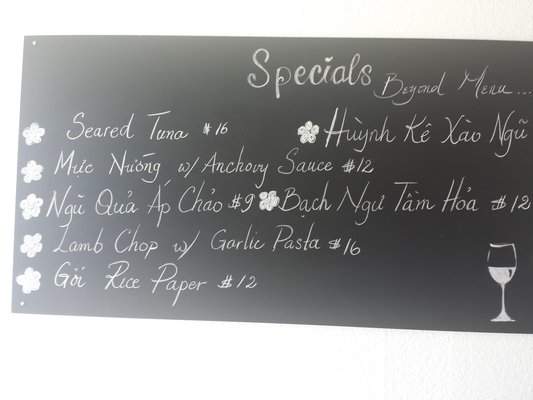 Specials Beyond Menu...
Seared Tuna $16
Huỳnh Kê Xào Ngũ
Mực Nướng w/ Anchovy Sauce $12
Ngũ Quả Áp Chảo $9
Bạch Ngư Tầm Hỏa $12
Lamb Chop w/ Garlic Pasta $16
Gỏi Rice Paper $12